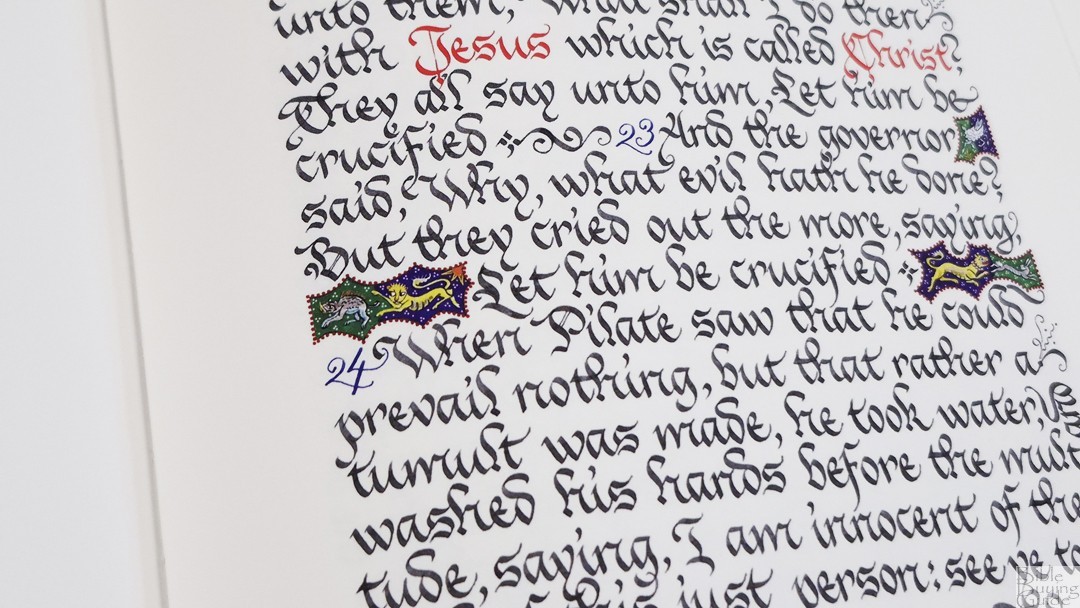 unto them, What shall I do then
with Jesus which is called Christ?
They all say unto him, Let him be
crucified 23 And the governor
said, Why, what evil hath he done?
But they cried out the more, saying,
Let him be crucified
24 When Pilate saw that he could
prevail nothing, but that rather a
tumult was made, he took water,
washed his hands before the mult
tude, saying, I am innocent of the
this just person: see ye to
Bible
Buying
Guide